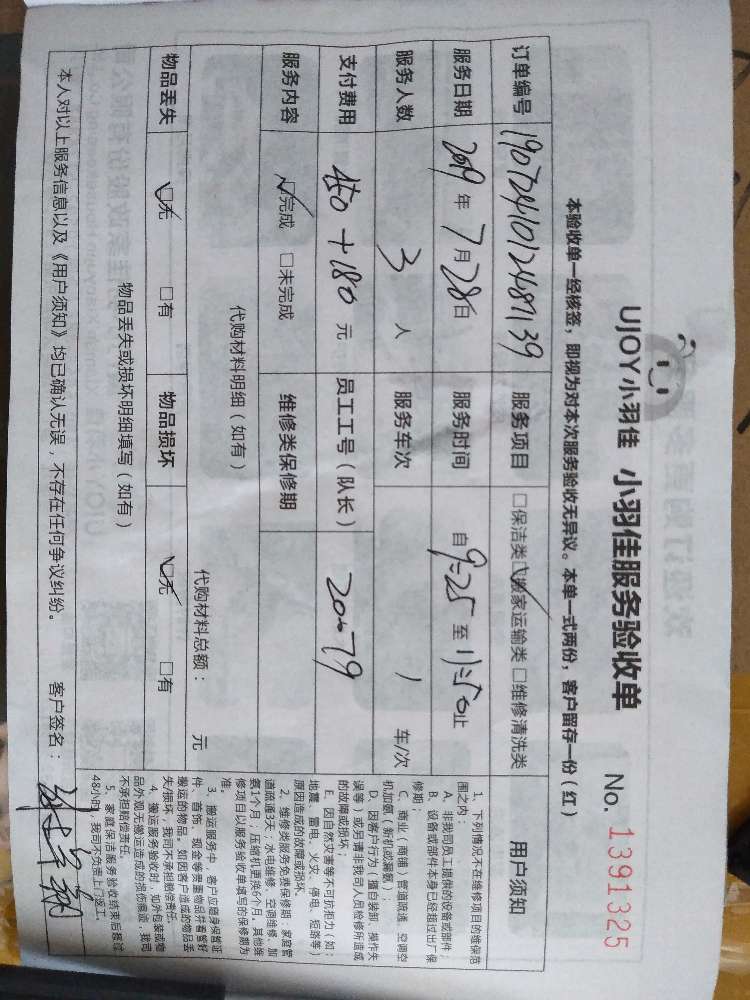 UJOY小羽佳 小羽佳服务验收单 No. 1391325
本验收单一经核签，即视为对本次服务验收无异议。本单一式两份，客户留存一份（红）
订单编号 服务项目 □保洁类 □搬家运输类 □维修清洗类
服务日期 2019年7月28日 服务时间 自9:25至11:50止
服务人数 3人 服务车次 1车/次
支付费用 450+180元 员工工号（队长）
服务内容 □完成 □未完成 维修类保修期
代购材料明细（如有）
代购材料总额： 元
物品丢失 □无 □有 物品损坏 □无 □有
物品丢失或损坏明细填写（如有）
本人对以上服务信息以及《用户须知》均已确认无误，不存在任何争议纠纷。 客户签名：
用户须知
1、下列情况不在维修项目的维保范
围之内：
A、非我司员工提供的设备或部件；
B、设备或部件本身已经超过出厂保
修期；
C、商业（商铺）管道疏通、空调空
机加氟（新机或漏氟）；
D、因客户行为（擅自装卸、操作失
误等）或另请非我司人员检修所造成
的故障或损坏；
E、因自然灾害等不可抗拒力（如：
地震、雷电、火灾、停电、短路等）
原因造成的故障或损坏。
2、维修类服务免费保修期：家庭管
道疏通3天；水电维修、空调维修、加
氨1个月；压缩机更换6个月。其他维
修项目以服务验收单填写的保修期为
准。
3、搬运服务中，客户应随身保管证
件、首饰、现金等贵重物品并看管好
搬运的物品，如因客户造成的物品丢
失/损坏，我司不承担赔偿责任。
4、搬运服务验收时，如外包装或物
品外观无搬运造成的损伤痕迹，我司
不承担赔偿责任。
5、家庭保洁服务验收结束后超过
48小时，我司不负责上门返工。